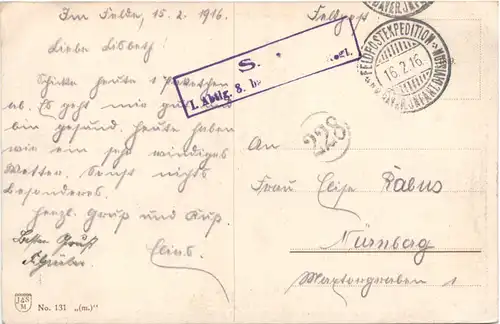 Im Felde, 15.2.1916.
Feldpost
Liebe Lisbeth!
Schicke heute 1 Paketchen
ab. Es geht mir gut
bin gesund. Heute haben
wir ein sehr windiges
Wetter. Sonst nichts
besonderes.
herzl. Gruß und Kuß
Elias.
Besten Gruß
S.
I. Abtlg. 8. b
FELDPOSTEXPEDITION
16.2.16.
228
An
Frau Elise Rabus
Nürnberg
Maxtorgraben 1
No. 131 „(m.)"